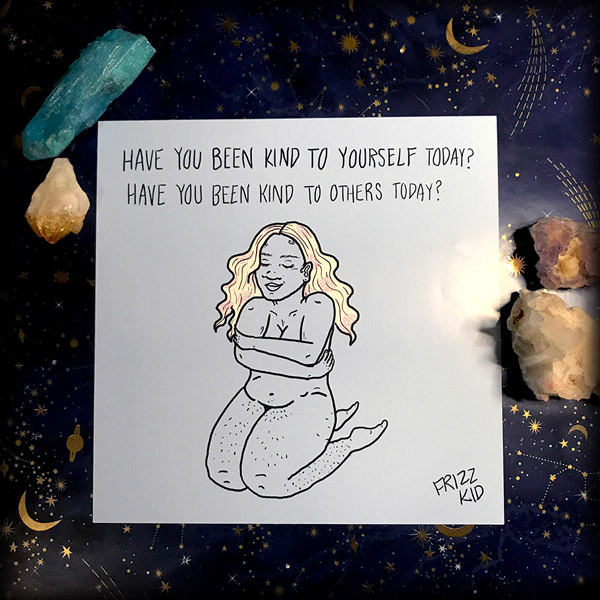 HAVE YOU BEEN KIND TO YOURSELF TODAY?
HAVE YOU BEEN KIND TO OTHERS TODAY?
FRIZZ
KID